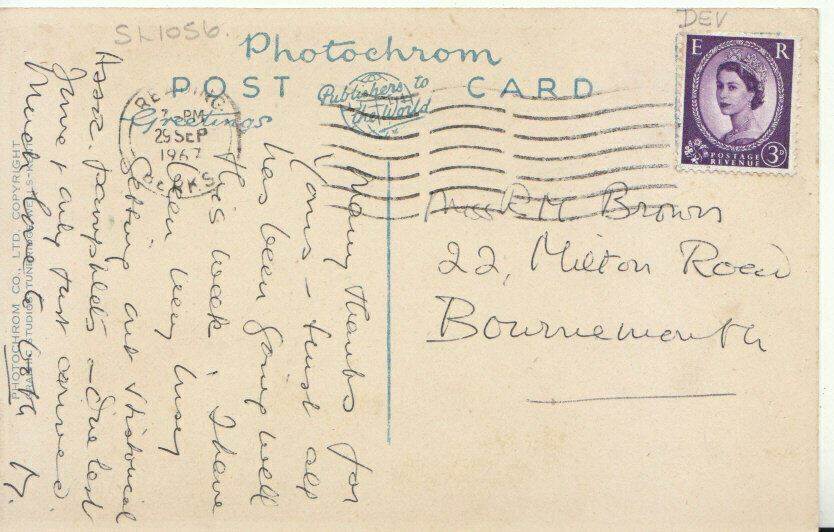 SL1056.
DEV
Photochrom
POST CARD
Publishers to
the World
Greetings
READING
7- PM
29 SEP
1967
BERKS
E R
POSTAGE
REVENUE
3D
Brown
22, Milton Road
Bournemouth
Many thanks for
yours - trust all
has been going well
this week. I have
been very busy
getting out Historical
Assoc. Pamphlets - one last
June, only just arrived
Much love to both
PHOTOCHROM CO., LTD. COPYRIGHT
STUDIOS TUNBRIDGE WELLS